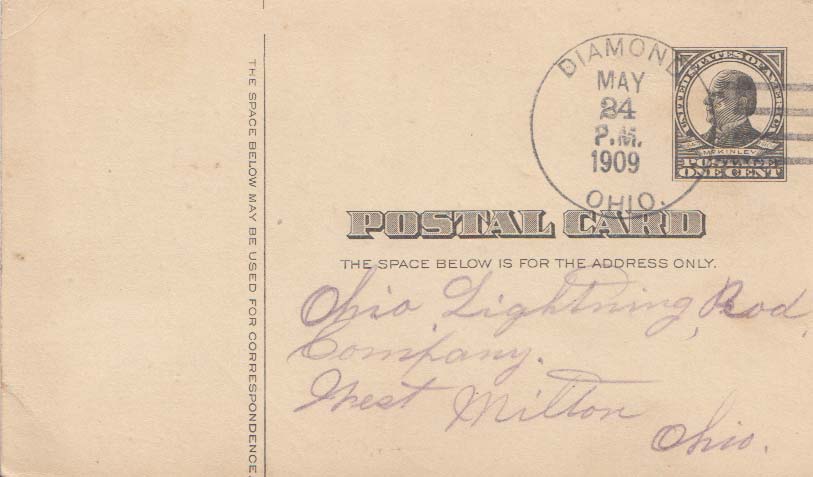 THE SPACE BELOW MAY BE USED FOR CORRESPONDENCE.
DIAMOND
MAY
24
P.M.
1909
OHIO.
UNITED STATES OF AMERICA
McKINLEY
POSTAGE
ONE CENT
POSTAL CARD
THE SPACE BELOW IS FOR THE ADDRESS ONLY.
Ohio Lightning Rod
Company.
West Milton
Ohio.